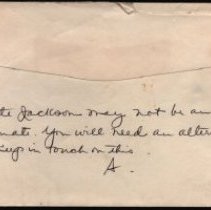 te Jackson may not be an
nate. You will need an alter
Keep in touch on this.
A.